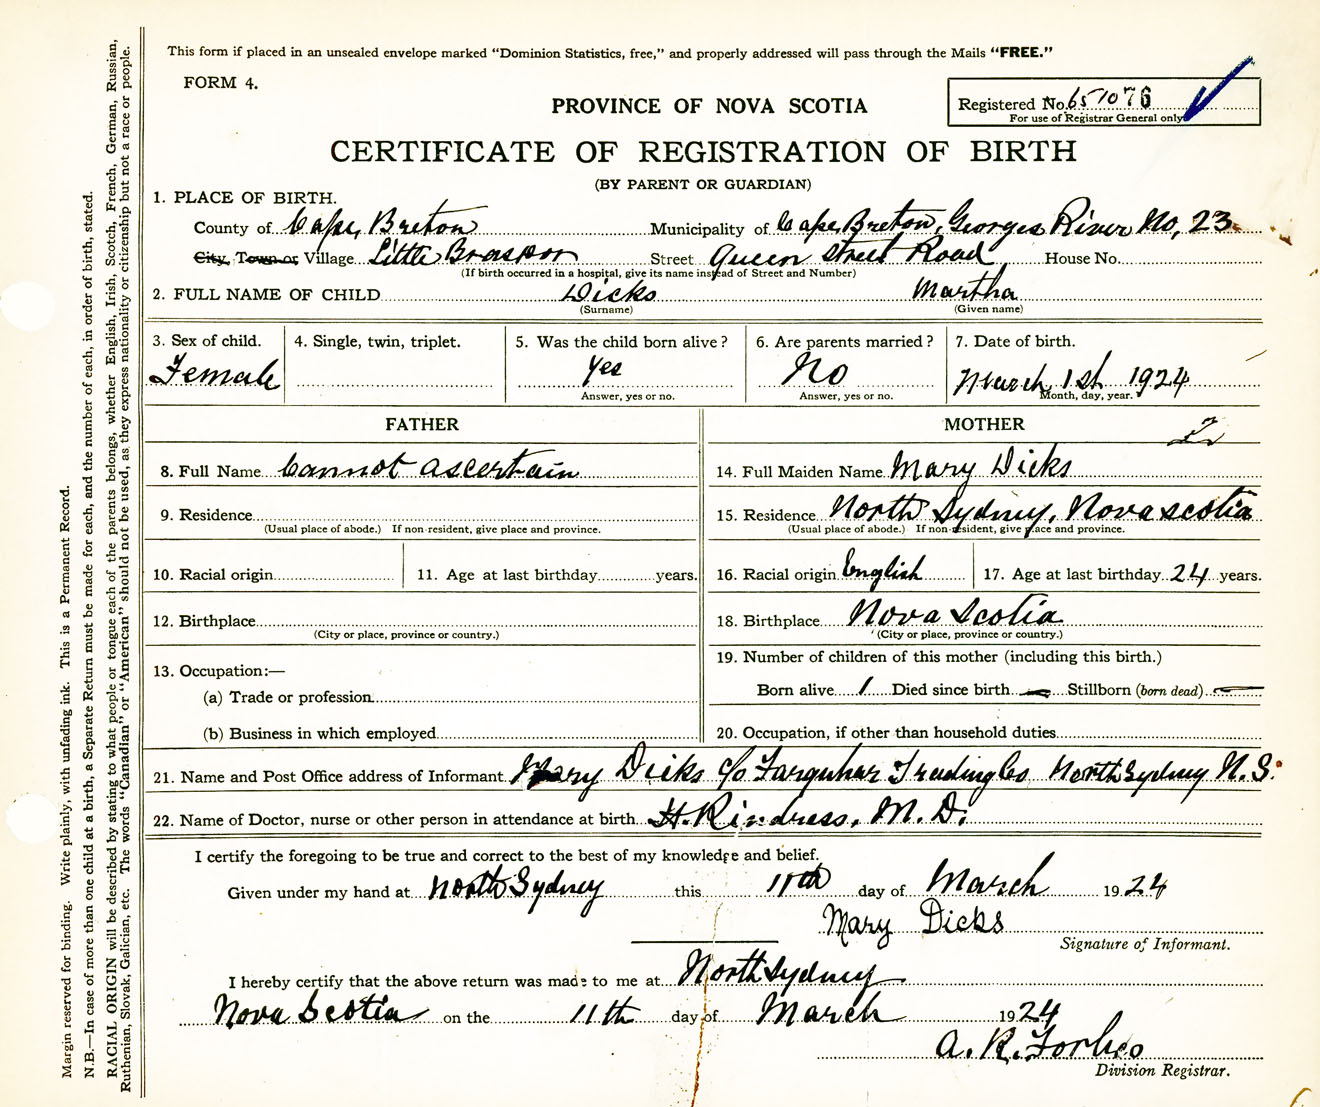 This form if placed in an unsealed envelope marked "Dominion Statistics, free," and properly addressed will pass through the Mails "FREE."
FORM 4.
PROVINCE OF NOVA SCOTIA
Registered No. 651076
For use of Registrar General only
CERTIFICATE OF REGISTRATION OF BIRTH
(BY PARENT OR GUARDIAN)
1. PLACE OF BIRTH.
County of Cape Breton Municipality of Cape Breton, Georges River No, 23
City, Town or Village Little Brasdor Street Queen Street Road House No.
(If birth occurred in a hospital, give its name instead of Street and Number)
2. FULL NAME OF CHILD Dicks Martha
(Surname) (Given name)
3. Sex of child. 4. Single, twin, triplet. 5. Was the child born alive? 6. Are parents married? 7. Date of birth.
Female Yes No March 1st 1924
Answer, yes or no. Answer, yes or no. Month, day, year.
FATHER MOTHER
8. Full Name Cannot ascertain 14. Full Maiden Name Mary Dicks
9. Residence 15. Residence North Sydney, Nova scotia
(Usual place of abode.) If non-resident, give place and province. (Usual place of abode.) If non-resident, give place and province.
10. Racial origin 11. Age at last birthday years. 16. Racial origin English 17. Age at last birthday 24 years.
12. Birthplace 18. Birthplace Nova Scotia
(City or place, province or country.) (City or place, province or country.)
13. Occupation:— 19. Number of children of this mother (including this birth.)
(a) Trade or profession Born alive 1 Died since birth — Stillborn (born dead) —
(b) Business in which employed 20. Occupation, if other than household duties
21. Name and Post Office address of Informant Mary Dicks c/o Farquhar Trading Co North Sydney N.S.
22. Name of Doctor, nurse or other person in attendance at birth H. Rindress, M.D.
I certify the foregoing to be true and correct to the best of my knowledge and belief.
Given under my hand at North Sydney this 11th day of March 1924
Mary Dicks
Signature of Informant.
I hereby certify that the above return was made to me at North Sydney
Nova Scotia on the 11th day of March 1924
A. R. Forbes
Division Registrar.
Margin reserved for binding. Write plainly, with unfading ink. This is a Permanent Record.
N.B.—In case of more than one child at a birth, a Separate Return must be made for each, and the number of each, in order of birth, stated.
RACIAL ORIGIN will be described by stating to what people or tongue each of the parents belongs, whether English, Irish, Scotch, French, German, Russian,
Ruthenian, Slovak, Galician, etc. The words "Canadian" or "American" should not be used, as they express nationality or citizenship but not a race or people.